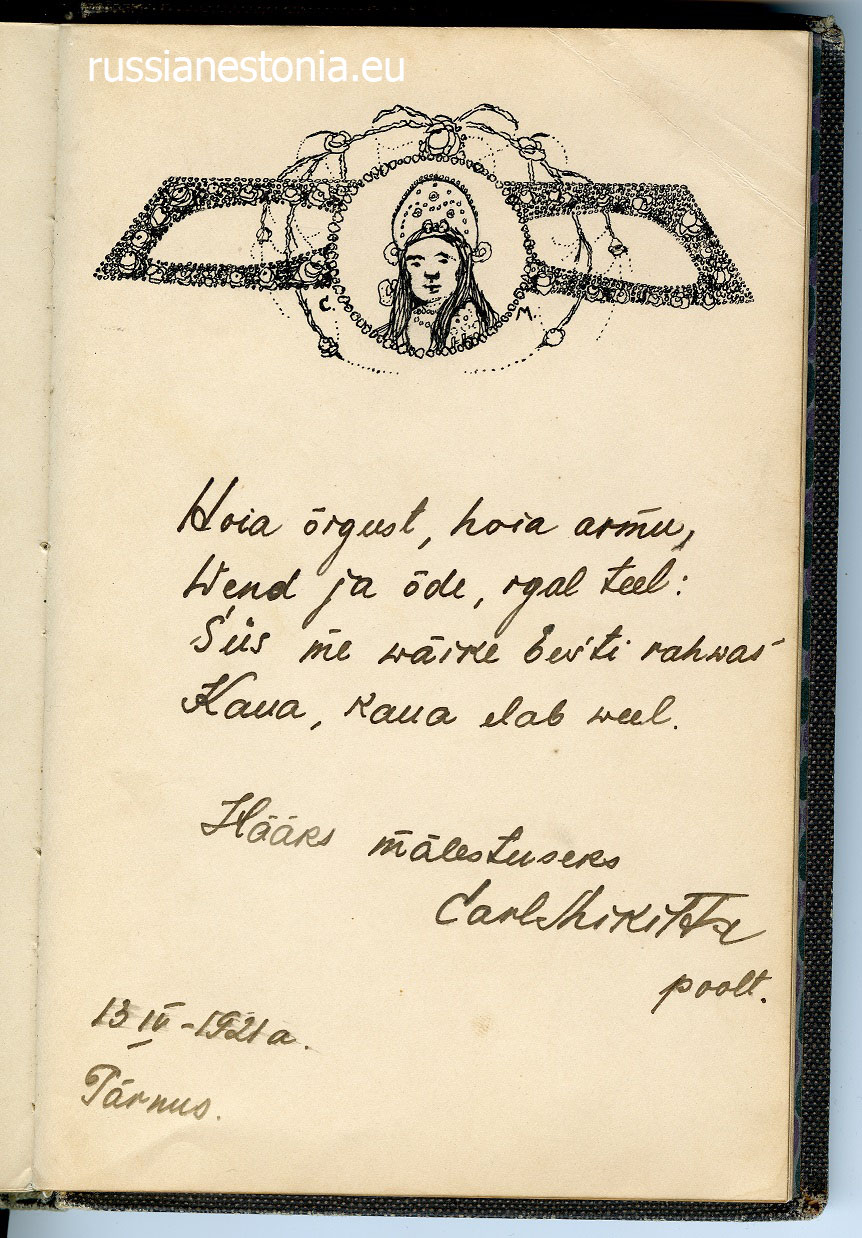 russianestonia.eu
C. M.
Hoia õigust, hoia armu,
Wend ja õde, igal teel:
Siis me wäike Eesti rahwas
Kaua, kaua elab weel.
Hääks mälestuseks
Carl Mikitta
poolt.
13 IV - 1921 a.
Pärnus.